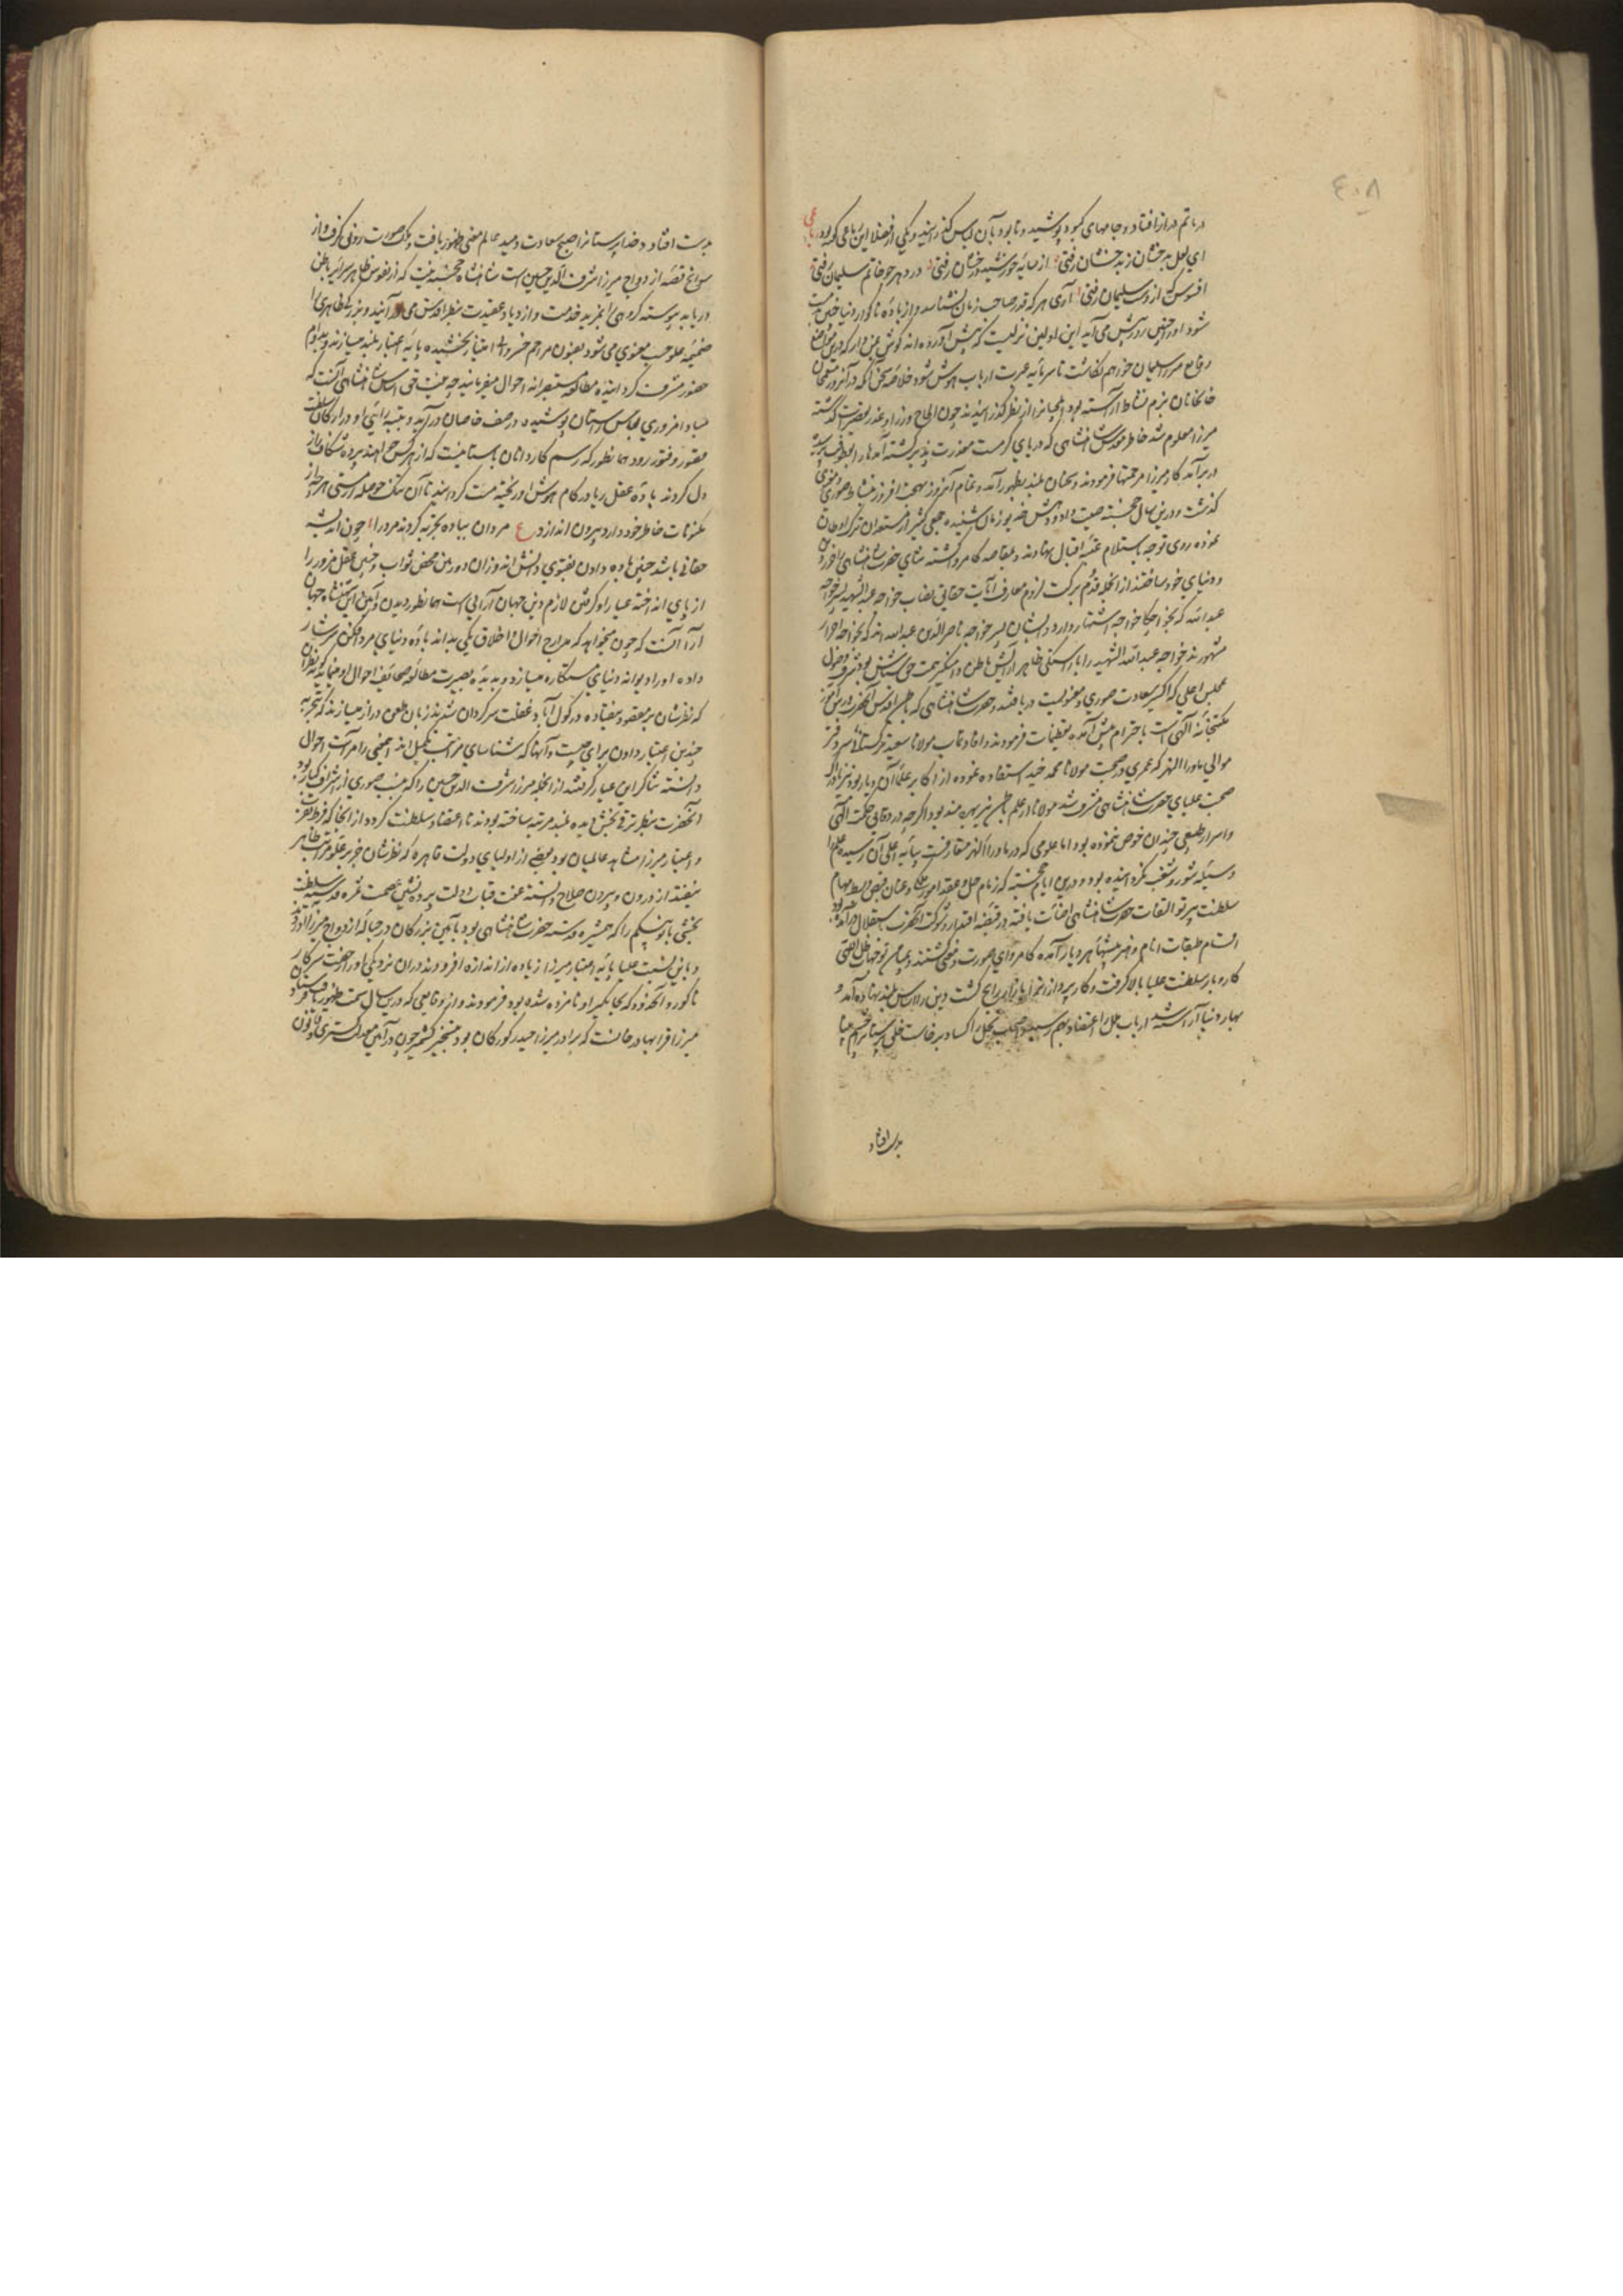 در ماتم دراز افتاد و جامهای کبود پوشید و تا بود بآن لباس گذرانید و یکی از فضلا این رباعی گفته بود رباعی
ای لعل بدخشان ز بدخشان رفتی از سایه خورشید درخشان رفتی در دهر چو خاتم سلیمان رفتی
افسوس که از دست سلیمان رفتی آری هر که قدر صاحب زمان نشناسد و از باده ناگوار دنیا چنین مست
شود او را چنین روز پیش می آید این اولین نزلیست که پیش آورده اند گوش
وقایع میرزا سلیمان خواهم نگاشت تا سرمایه عبرت ارباب هوش شود خلاصه سخن آنکه در آنروز منعم خان
خانخانان بزم نشاط آراسته بود از نظر گذرانیدند چون الحاح و زاری و عذر تقصیرات گذشته
میرزا معلوم شد خاطر مقدس شاهنشاهی که دریای کرمست معذرت پذیر گشته
در برآمد کار میرزا مرحمتها فرمودند و سخنان بلند بظهور آمد و تمام آنروز بهجت افروز بنشاط صوری و معنوی
گذشت و درین سال خجسته صیت داد و دهش خدیو زمان شنیده جمعی کثیر از مستعدان ترک اوطان
نموده روی توجه باستلام عتبه اقبال نهادند و بمقاصد کامروا گشته ثنای حضرت شاهنشاهی را ورد دین
و دنیای خود ساختند از آنجمله قدوم برکت لزوم معارف آیات حقایق نصاب خواجه عبد الشهید پسر خواجه
عبد الله که بخواجگا خواجه اشتهار دارد و ایشان پسر خواجه ناصر الدین عبید الله اند که بخواجه احرار
مشهورند خواجه عبد الشهید را با راستگی ظاهر آرایش باطن دامنگیر همت حق شناس بود بشرف دخول
مجلس اعلی که اکسیر سعادت صوری و معنویست دریافتند و حضرت شاهنشاهی که باطن اقدس آنحضرت دبیرآموز
مکتبخانه الهی است باحترام پیش آمده تعظیمات فرمودند و افادتمآب مولانا سعید ترکستانی سر دفتر
موالی ماوراء النهر که عمری در صحبت مولانا محمد استفاده نموده از اکابر علمای آن دیار بود نیز بادراک
صحبت علیای حضرت شاهنشاهی مشرف شد مولانا از علم باطن نیز بهره مند بود اگرچه در دقایق حکمت الهی
و اسرار طبیعی چندان خوض ننموده بود اما علومی که در ماوراء النهر متعارفست بپایه اعلای آن رسیده علم را
وسیله شور و شغب نگردانیده بود و درین ایام خجسته که زمام حل و عقد امور ملکی و عنان قبض و بسط مهام
سلطنت بپرتو التفات حضرت شاهنشاهی اضائت یافته در قبضه اقتدار و شوکت آنحضرت استقلال درآمده بود
اقسام طبقات انام و هنرپیشهای هر دیار آمده کامروای صورت و معنی گشتند و بمیامن توجهات ظل الهی
کار و بار سلطنت علیا بالا گرفت و کار پرداز را بازار رایج گشت و دین را اساس بلند نهاده آمد و
بهار دنیا آراسته شد ارباب را اعتضاد بهم رسید و اصحاب را کساد برخاست خلق پرستانرا
بدست افتاد
بدست افتاد و خداپرستانرا صبح سعادت دمید عالم معنی ظهور یافت و ملک صورت رونق گرفت و از
سوانح قصه ازدواج میرزا شرف الدین حسین است شاهنشاه خجسته نیت که از نقوش ظاهر سرایر باطن
دریابد پیوسته گروهی را بمزید خدمت و ازدیاد عقیدت بنظر اقدس می درآیند و بزرگی ظاهری را
ضمیمه علو حسب معنوی می شود بفنون مراحم خسروانه امتیاز بخشیده پایه اعتبار بلند میسازند و بدوام
حضور مشرف گردانیده مطالعه مستبصرانه احوال میفرمایند چه همت اساس شاهنشاهی آنست که
مبادا مزوری لباس راستان پوشیده در صف خاصان درآید و بتیره رائی او در ارکان سلطنت
قصور و فتور رود همانطور که رسم کاردانان باستانیست که از هر کس خواهند پرده شکاف راز
دل کردند باده عقل ربا در کام هوش او ریخته مست گردانند تا آن تنگ حوصله از مستی هر چه از
مکنونات خاطر خود دارد بیرون اندازد ع مردان بباده تجربه کردند مرد را چون اندیشه
حقانی باشد چنین باده دادن بفتوی دانش اندوزان دوربین محض ثواب و چنین عقل مزور را
از پای انداخته عیار او گرفتن لازم دین جهان آرایی است همانطور دیدن و آئین این شاهنشاه جهان
آرا آنست که چون میخواهد که مدارج احوال و اخلاق یکی بداند باده دنیای مردافکن سرشار
داده او را دیوانه دنیای ستمکاره میسازد و بدیده بصیرت مطالعه صحایف احوال او مینماید کوته نظران
که نظرشان بر مقصود نیفتاده در کول آباد غفلت سرگردان شدند زبان طعن دراز میسازند که بتجربه
چندین اعتبار دادن برای چیست و آنها که شناسای مراتب تکمیل اند اینمعنی را مرآت احوال
دانسته شاکر این عیار گرفتند از آنجمله میرزا شرف الدین حسین را که بنسب صوری از اشراف کبار بود
آنحضرت بنظر ترقی بخش دیده بلند مرتبه ساخته بودند تا اعتضاد سلطنت گردد از آنجا که فرط عزت
و اعتبار میرزا مشاهد عالمیان بود بعضی از اولیای دولت قاهره که نظرشان جز بر علو مراتب ظاهر
نیفتد از درون و بیرون صلاح دانسته عفت قباب دولت پرده نشین عصمت
بخشی بانو بیگم را که همشیره قدسیه حضرت شاهنشاهی بود بآیین بزرگان در حباله ازدواج میرزا درآوردند
و باین نسبت علیا پایه اعتبار میرزا زیاده از اندازه افزود و در آن نزدیکی او را رخصت سرکار
ناگور و آنحدود که بجایگیر او نامزد شده بود فرمودند و از وقایعی که درین سال سمت ظهور یافت فرستادن
میرزا قرا بهادر خانست که برادر میرزا حیدر گورکان بود بتسخیر کشمیر چون در آئین معدلت گستری و قانون